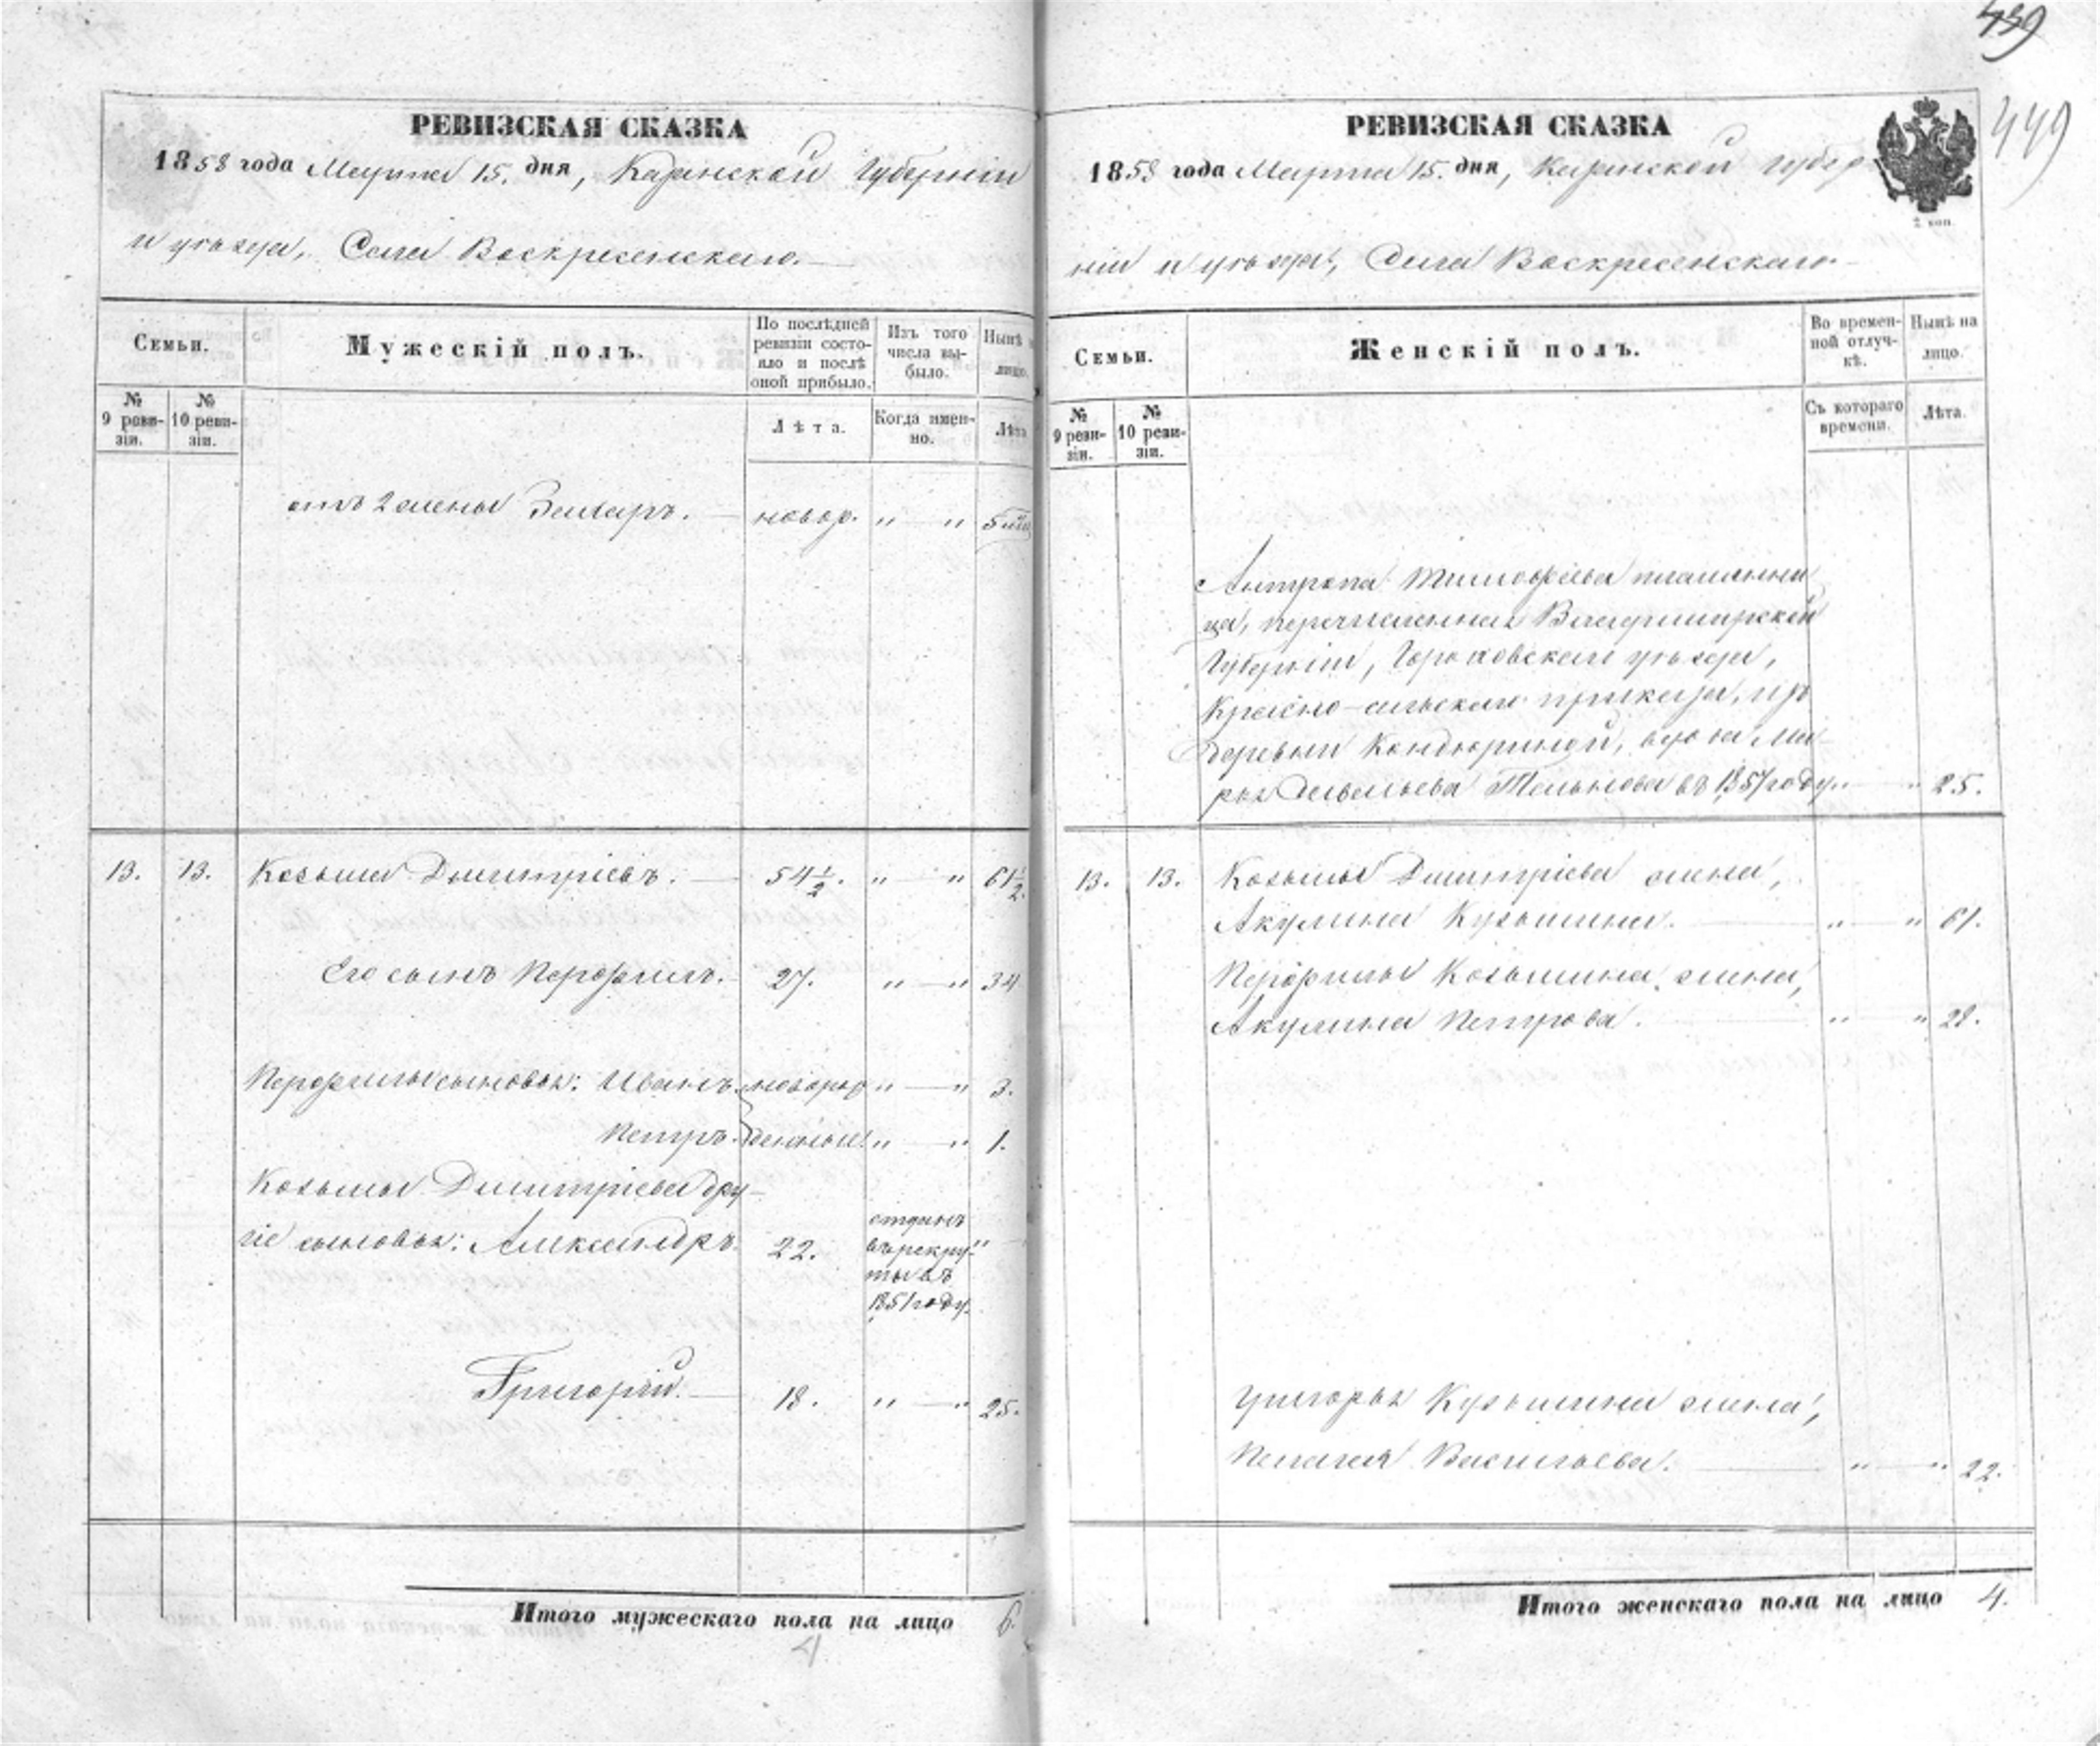 439
449
РЕВИЗСКАЯ СКАЗКА
1858 года Марта 15. дня, Казанской Губерніи
и уѣзда, Села Воскресенскаго.
Семьи.
Мужескій полъ.
По послѣдней ревизіи состояло и послѣ оной прибыло.
Изъ того числа выбыло.
Нынѣ
лицо.
№ 9 ревизіи.
№ 10 ревизіи.
Лѣта.
Когда именно.
Лѣта
отъ 2 жены новор. " — " 5
13. 13. Козьма Дмитріевъ. — 54½. " " 61½.
Его сынъ Перфилъ. 27. " — " 34
Перфилы сыновья: Иванъ. новорож " — " 3.
Петръ. денные. " — " 1.
Козьмы Дмитріева дру-
гіе сыновья: Александръ. 22. отданъ въ рекруты въ 1851 году. "
Григорій. — 18. " — " 25.
Итого мужескаго пола на лицо 6.
4
РЕВИЗСКАЯ СКАЗКА
1858 года Марта 15. дня, Казанской Губер-
2 коп.
ніи и уѣзда, Села Воскресенскаго.
Семьи.
Женскій полъ.
Во временной отлучкѣ.
Нынѣ на лицо.
№ 9 ревизіи.
№ 10 ревизіи.
Съ котораго времени.
Лѣта.
Антропа Тимофѣева племянни
ца, перечисленная Владимирской
Губерніи, Гороховскаго уѣзда,
Красно-сельскаго приказа, изъ
деревни Кондюриной, вдова Ма-
рья Савельева въ 1857 году. " — " 25.
13. 13. Козьмы Дмитріева жена,
Акулина Кузьмина. — " — " 61.
Перфилы Козьмина жена,
Акулина Петрова. " " 28.
Григорья Кузьмина жена,
Пелагея Васильева. — " — " 22.
Итого женскаго пола на лицо 4.